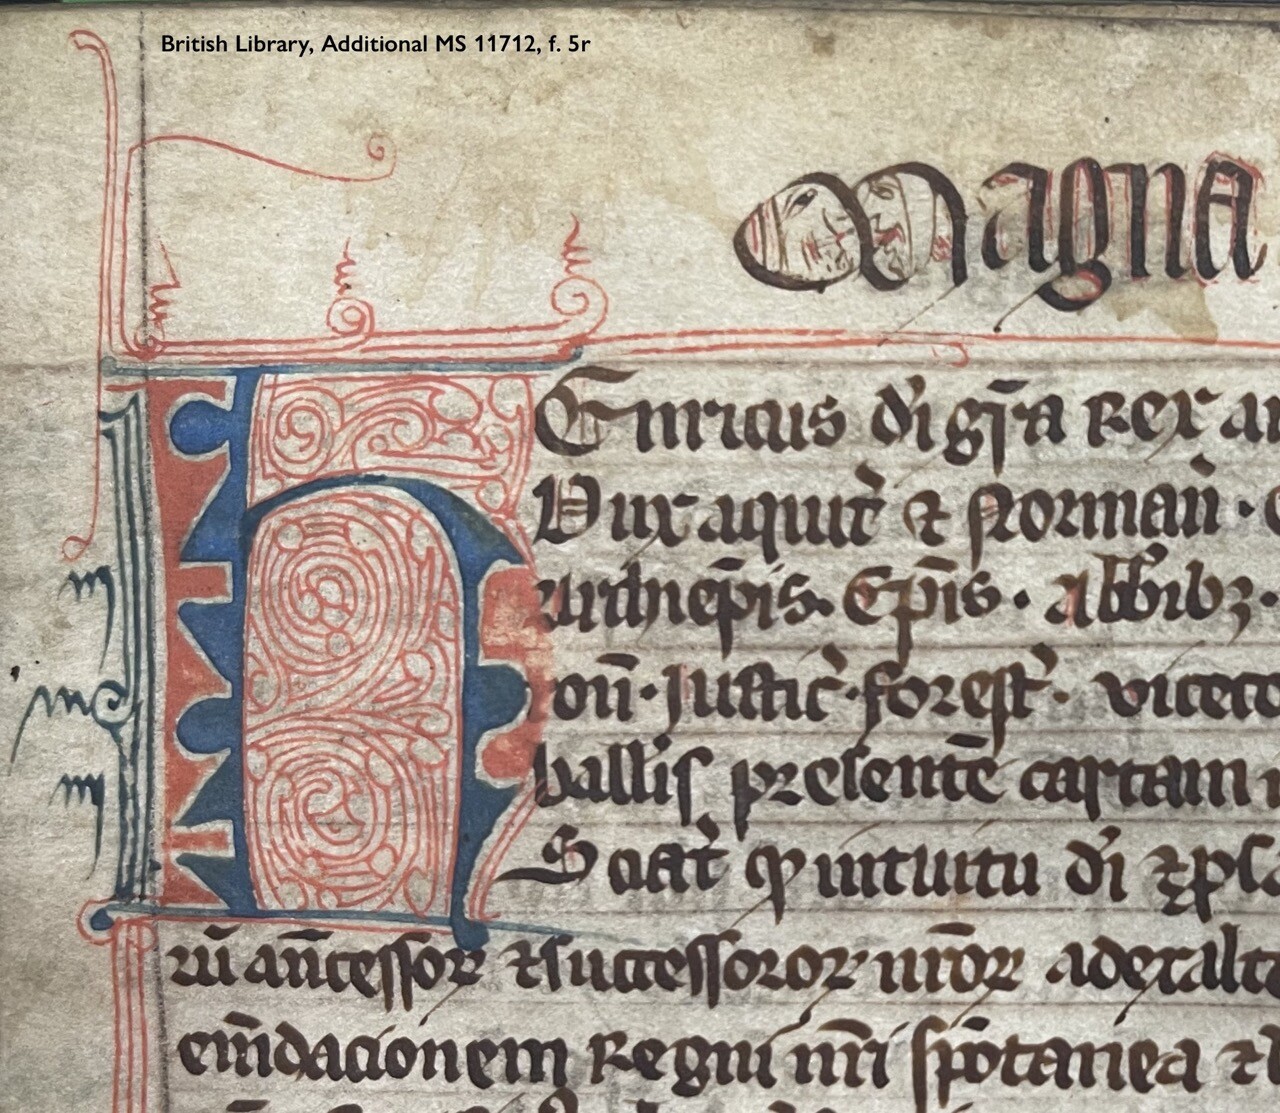 British Library, Additional MS 11712, f. 5r
Magna
hEnricus d̓i gr̄a Rex an
Dux aquit̓ & Norman̄ · C
archiep̄is. Ep̄is · Abb̓ibꝫ ·
ron̄ · Justic̓ · forest̓ · viceco
ballis presentē cartam
Sciat̓ ꝙ intuitu d̓i ⁊ ꝓ sa
rū an̄cessoꝝ ⁊ successoroꝝ nr̄oꝝ ad exalta
em̄dacionem Regni nr̄i sp̄otanea ⁊